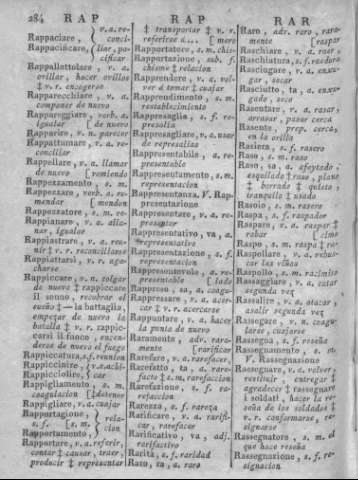 284 RAP RAP RAR
Rappaciare,
Rappacificare,
v. a. re-
conci-
liar, pa-
cificar
Rappallottolare, v. a.
orillar, hacer orillos
‡ v. r. encogerse
Rapparecchiare, v. a.
componer de nuevo
Rappareggiare, verb. a.
igualar de nuevo
Rapparire, v. n. parecer
Rappattumare, v. a. re-
conciliar
Rappellare, v. a. llamar
de nuevo [remiendo
Rappezzamento, s. m.
Rappezzare, verb. a. re-
mendar [mendon
Rappezzatore, s. m. re-
Rappianare, v. a. alla-
nar, igualar
Rappiastrare, v. a. reu-
nir ‡ v. r. reconciliarse
Rappiattarsi, v. r. aga-
charse
Rappiccare, v. a. colgar
de nuevo ‡ rappiccare
il sonno, recobrar el
sueño ‡ — la battaglia,
empezar de nuevo la
batalla ‡ v. r. rappic-
carsi il fuoco, encen-
derse de nueva el fuego
Rappiccatura, s. f. reunion
Rappiccinire,
Rappicciolire,
Rappigliamento, s. m.
coagulacion
Rappigliare, v. a. cuajar
Rapportagione,
s. f. [s. m.
Rapportamento,
rela-
cion
Rapportare, v. a. referir,
contar ‡ causar, traer,
producir ‡ representar
‡ transportar ‡ v. r.
referirse à...
Rapportatore, s. m. chis-
Rapportazione, sub. f.
chisme ‡ relacion
Rapprendere, v. a. vol-
ver à tomar ‡ cuajar
Rapprendimento, s. m.
restablecimiento
Rappresaglia, s. f. re-
presalia
Rappresagliare, v. a. usar
de represalias
Rappresentabile, a. re-
presentable
Rappresentamento, s. m.
representacion
Rappresentanza, V. Rap-
presentazione
Rappresentare, v. a. re-
presentar
Rappresentativo, va, a.
representativo
Rappresentazione, s. f.
representacion
Rappresentevole, a. re-
presentable [lado
Rappreso, sa, a. coagu-
Rappressare, v. a. acer-
car ‡ v. r. acercarse
Rappuntare, v. a. hacer
la punta de nuevo
Raramente, adv. rara-
mente [rarificar
Rarefare, v. a. rarefacer,
Rarefatto, ta, a. rare-
facto ‡ s. m. rarefaccion
Rarefazione, s. f. ra-
refaccion
Rarezza, s. f. rareza
Rarificare, v. a. rarifi-
car, rarefacer
Rarificativo, va, adj.
rarifactivo
Rarità, s. f. raridad
Raro, ra, a. raro
Raro, adv. raro, rara-
mente [raspar
Raschiare, v. a. raer,
Raschiatura, s. f. raedura
Rasciugare, v. a. enxu-
gar, secar
Rasciutto, ta, a. enxu-
gado, seco
Rasentare, v. a. rasar,
arrasar, pasar cerca
Rasente, prep. cerca,
en la orilla
Rasiera, s. f. rasero
Raso, s. m. raso
Raso, sa, a. afeytado,
esquilado ‡ raso, plano
‡ borrado ‡ quieto,
tranquilo ‡ usado
Rasoio, s. m. rasero
Raspa, s. f. raspador
Raspare, v. a. raspar ‡
robar
Raspo, s. m. raspa ‡
Raspollare, v. a. rebus-
car las viñas
Raspollo, s. m. racimito
Rassaggiare, v. a. catar
segunda vez
Rassalire, v. a. atacar,
asalir segunda vez
Rassegare, v. n. coagu-
larse, cuajarse
Rassegna, s. f. reseña
Rassegnamento, s. m.
V. Rassegnazione
Rassegnare, v. a. volver,
restituir, entregar ‡
agradecer ‡ rassegnar
i soldati, hacer la re-
seña de los soldados ‡
v. r. conformarse, re-
signarse
Rassegnatore, s. m. el
que hace reseña
Rassegnazione, s. f. re-
signacion